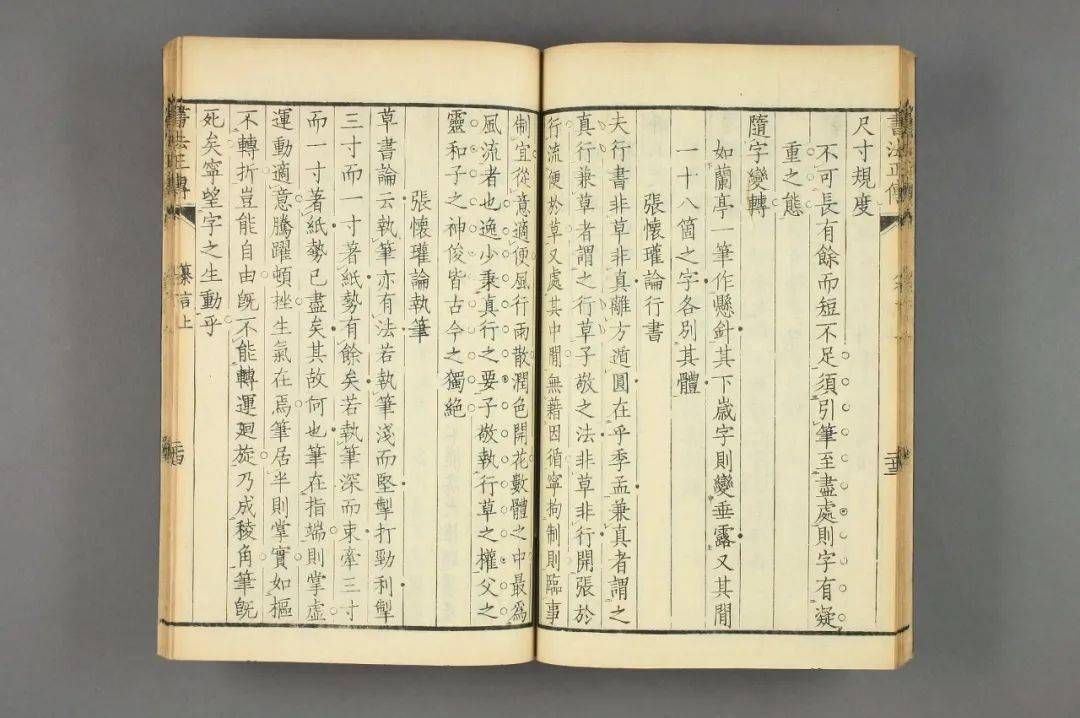 書法正傳
尺寸規度
不可長有餘而短不足須引筆至盡處則字有凝
重之態
隨字變轉
如蘭亭一筆作懸針其下歲字則變垂露又其間
一十八箇之字各別其體
張懷瓘論行書
夫行書非草非真離方遁圓在乎季孟兼真者謂之
真行兼草者謂之行草子敬之法非草非行開張於
行流便於草又處其中間無藉因循寧拘制則臨事
制宜從意適便風行雨散潤色開花數體之中最為
風流者也逸少秉真行之要子敬執行草之權父之
靈和子之神俊皆古今之獨絕
張懷瓘論執筆
草書論云執筆亦有法若執筆淺而堅掣打勁利掣
三寸而一寸著紙勢有餘矣若執筆深而束牽三寸
而一寸著紙勢已盡矣其故何也筆在指端則掌虛
運動適意騰躍頓挫生氣在焉筆居半則掌實如樞
不轉折豈能自由旣不能轉運廻旋乃成稜角筆旣
死矣寧望字之生動乎
書法正傳
纂言上